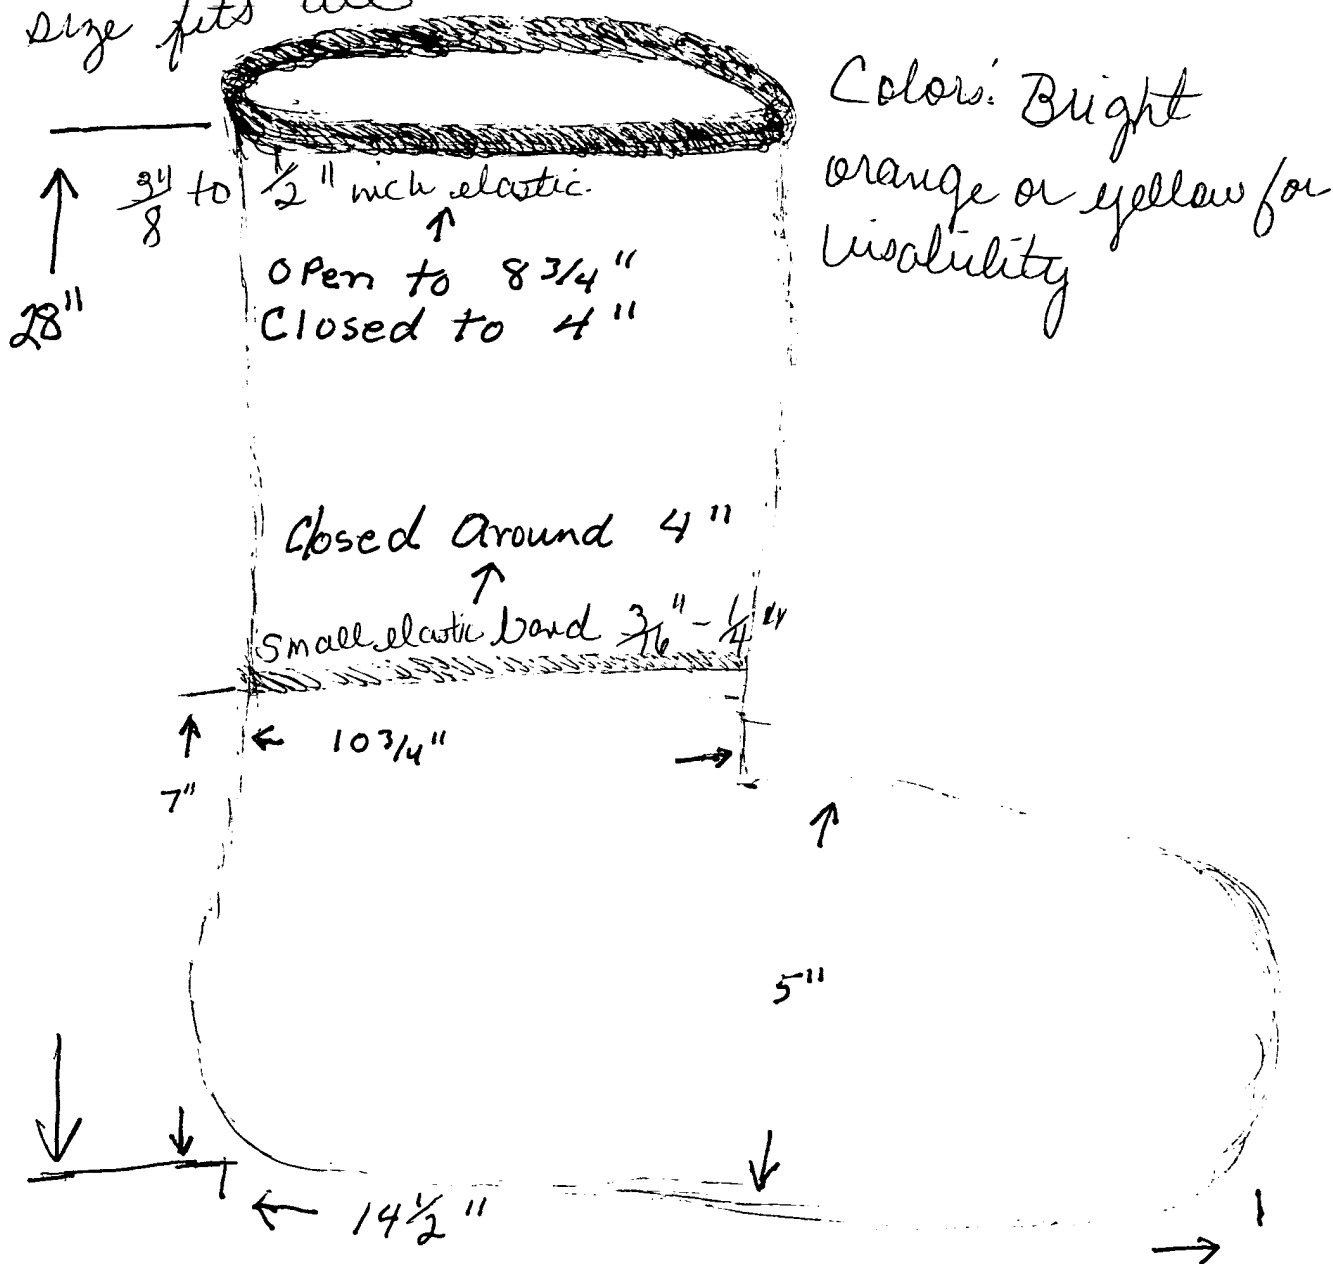 size fits all
Colors: Bright
orange or yellow for
visability
3/8" to 1/2" inch elastic.
28"
Open to 8 3/4"
Closed to 4"
Closed Around 4"
small elastic band 3/16" - 1/4"
10 3/4"
7"
5"
14 1/2"